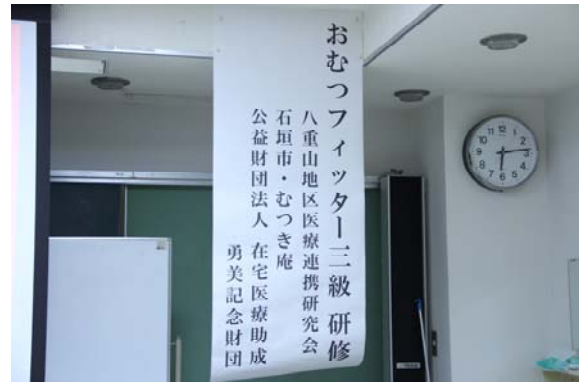 おむつフィッター三級 研修
八重山地区医療連携研究会
石垣市・むつき庵
公益財団法人 在宅医療助成
勇美記念財団
12
1
2
3
4
5
6
7
8
9
10
11